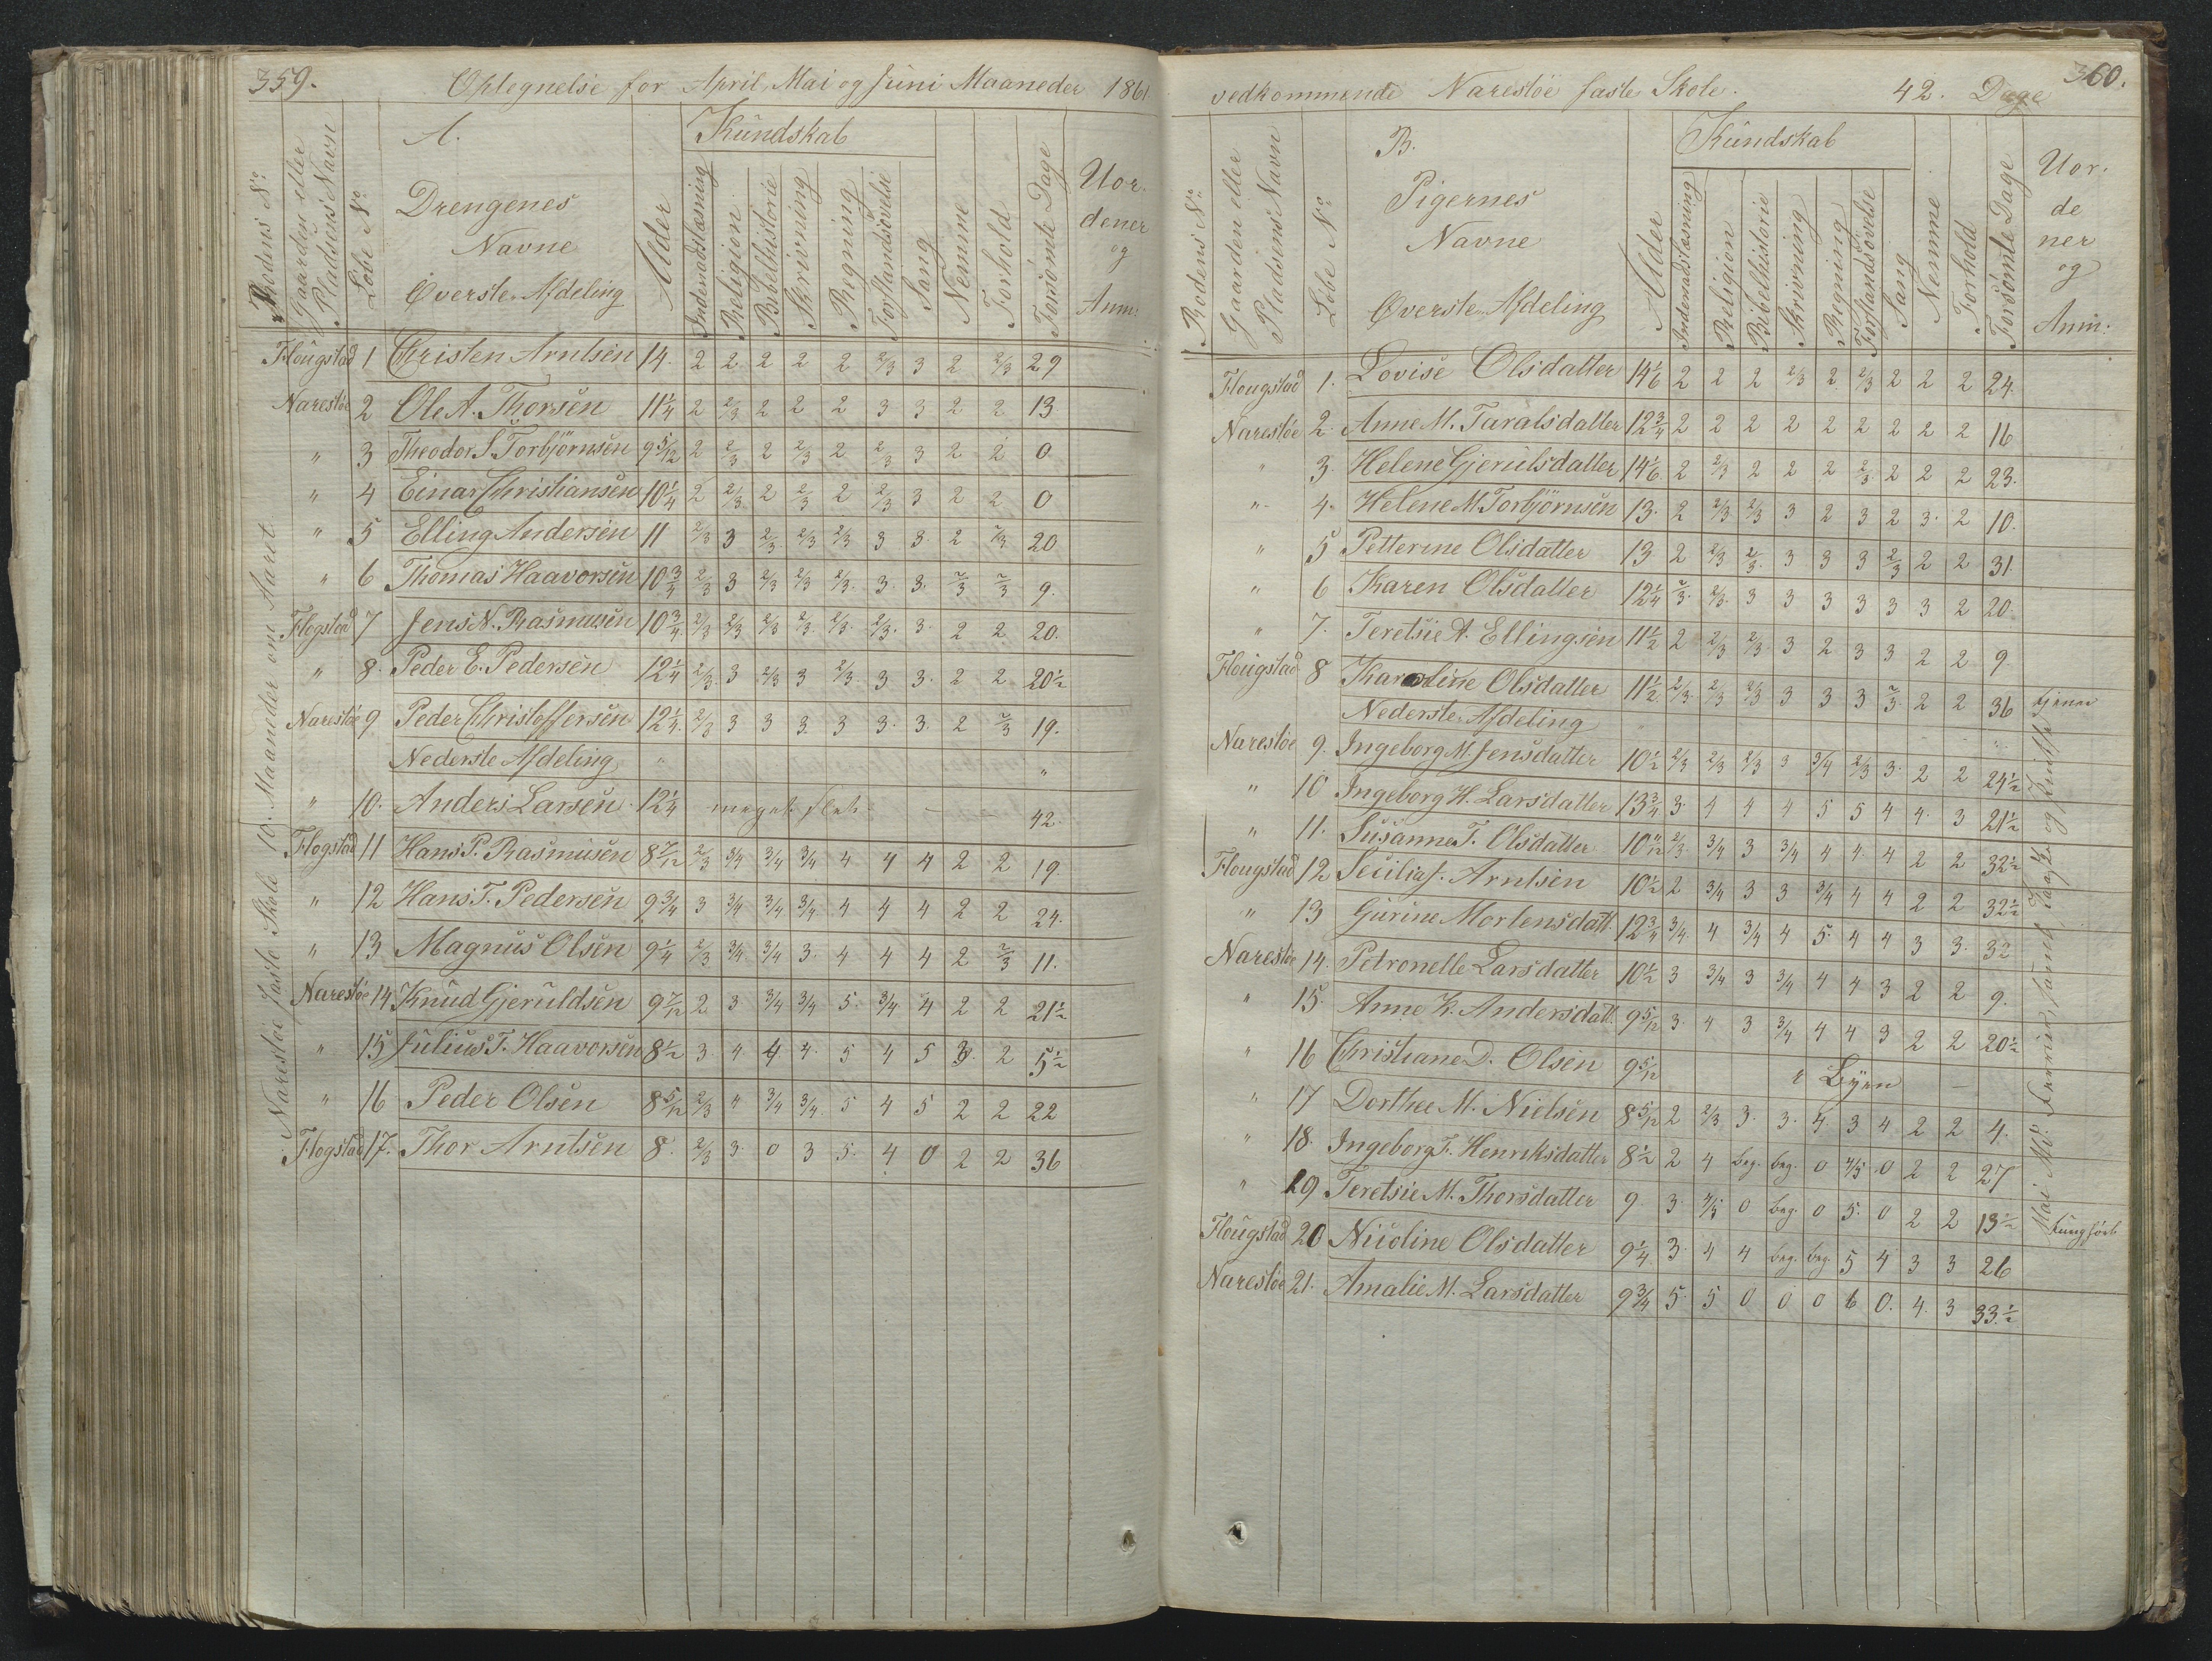 359.
Optegnelse for April, Mai og Juni Maaneder 1861.
Rodens No.
Gaarden eller Pladsens Navn
Løbe No.
A.
Drengenes
Navne
Øverste Afdeling
Alder
Kundskab
Indenadslæsning
Religion
Bibelhistorie
Skrivning
Regning
Forstandsøvelse
Sang
Nemme
Forhold
Forsømte Dage
Uor-
dener
og
Anm:
Flougstad 1 Christen Arntsen 14. 2 2 2 2 2 2/3 3 2 2/3 29
Narestøe 2 Ole A. Thorsen 11 1/4 2 2/3 2 2 2 3 3 2 2 13
" 3 Theodor S. Torbjörnsen 9 5/12 2 2/3 2 2/3 2 2/3 3 2 2 0
" 4 Einar Christiansen 10 1/4 2 2/3 2 2/3 2 2/3 3 2 2 0
" 5 Elling Andersen 11 2/3 3 2/3 2/3 2/3 3 3 2 2/3 20
" 6 Thomas Haavorsen 10 3/4 2/3 3 2/3 2/3 2/3 3. 3. 2/3 2/3 9.
Flogstad 7 Jens N. Rasmusen 10 3/4 2/3 2/3 2/3 2/3 2/3 2/3 3. 2 2 20.
" 8. Peder E. Pedersen 12 1/4 2/3 3 2/3 3 2/3 3 3. 2 2 20 1/2
Narestøe 9 Peder Christoffersen 12 1/4 2/3 3 3 3 3 3. 3. 2 2/3 19.
Nederste Afdeling " "
" 10. Anders Larsen 12 1/4 meget slet — 42.
Flogstad 11 Hans P. Rasmusen 8 7/12 2/3 3/4 3/4 3/4 4 4 4 2 2 19
" 12 Hans T. Pedersen 9 3/4 3 3/4 3/4 3/4 4 4 4 2 2 24.
" 13 Magnus Olsen 9 1/4 2/3 3/4 3/4 3. 4 4 4 2 2/3 11.
Narestøe 14 Knud Gjeruldsen 9 7/12 2 3 3/4 3/4 5. 3/4 4 2 2 21 1/2
" 15 Julius T. Haavorsen 8 1/2 3. 4. 4 4. 5 4 5 3. 2 5 1/2
" 16 Peder Olsen 8 5/12 2/3 " 3/4 3/4 5 4 5 2 2 22
Flogstad 17. Thor Arntsen 8. 2/3 3. 0 3 5. 4 0 2 2 36
Narestøe faste Skole 10. Maaneder om Aaret
360.
vedkommende Narestøe faste Skole. 42. Dage
Rodens No.
Gaarden eller Pladsens Navn
Løbe No.
B.
Pigernes
Navne
Øverste Afdeling
Alder
Kundskab
Indenadslæsning
Religion
Bibelhistorie
Skrivning
Regning
Forstandsøvelse
Sang
Nemme
Forhold
Forsømte Dage
Uor-
de
ner
og
Anm:
Flougstad 1. Lovise Olsdatter 14 1/6 2 2 2 2/3 2 2/3 2 2 2 24.
Narestøe 2. Anne M. Taralsdatter 12 3/4 2 2 2 2 2 2 2 2 2 16
" 3. Helene Gjerulsdatter 14 1/6 2 2/3 2 2 2 2/3 2 2 2 23.
" 4. Helene M. Torbjörnsen 13. 2 2/3 2/3 3 2 3 2 3. 2 10.
" 5 Petterine Olsdatter 13 2 2/3 2/3 3 3 3 2/3 2 2 31.
" 6 Karen Olsdatter 12 1/4 2/3 2/3 3 3 3 3 3 3 2 20.
" 7. Teretsie A. Ellingsen 11 1/2 2 2/3 2/3 3 2 3 3 2 2 9
Flougstad 8 Karoline Olsdatter 11 1/2 2/3 2/3 2/3 3 3 3 2/3 2 2 36 tjener
Nederste Afdeling
Narestøe 9. Ingeborg M. Jensdatter 10 1/2 2/3 2/3 2/3 3 3/4 2/3 3. 2 2 24 1/2
" 10 Ingeborg H. Larsdatter 13 3/4 3. 4 4 4 5 5 4 4. 3 21 1/2
" 11. Susanne T. Olsdatter 10 11/12 2/3 3/4 3 3/4 4 4. 4 2 2 32 1/2
Flougstad 12 Secilia J. Arntsen 10 1/2 2 3/4 3 3 3/4 4 4 2 2 32 1/2
" 13 Gurine Mortensdatt. 12 3/4 3/4 4 3/4 4 5. 4 4 3 3. 32
Narestøe 14. Petronelle Larsdatter 10 1/2 3 3/4 3 3/4 4 4 3 2 2 9.
" 15. Anne K. Andersdatt. 9 5/12 3. 4 3 3/4 4 4 3 2 2 20 1/2
" 16 Christiane D. Olsen 9 5/12 i Byen —
" 17 Dorthee M. Nielsen 8 5/12 2 2/3 3. 3. 4 3 4 2 2 4.
" 18. Ingeborg T. Henriksdatter 8 1/2 2 4 beg. beg. 0 4/5 0 2 2 27
" 19 Teretsie M. Thorsdatter 9. 3. 4/5 0 beg. 0 5. 0 2 2 13 1/2 tunghört
Flougstad 20 Nicoline Olsdatter 9 1/4 3. 4 4 beg. beg. 5 4 3 3 26
Narestøe 21. Amalie M. Larsdatter 9 3/4 5. 5 0 0 0 6 0. 4. 3 33 1/2
Mai Md. Ferrier, samt